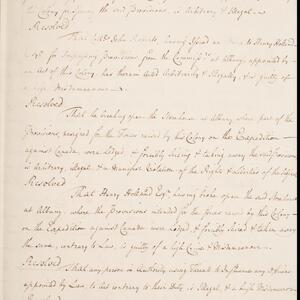 this Colony the said Provisions, is Arbitrary & Illegal
Resolved
That Coll John Roberts, having Issued an to Henry Holland
Esqr for Impressing Provisions from the Commissrs at Albany, appointed by
an Act of this Colony has therein acted Arbitrarily & Illegally, & is guilty of
a high Misdemeanour
Resolved
That the breaking open the Storehouse at Albany where part of the
Provisions designed for the Forces raised by this Colony on the Expedition
against Canada were Lodged & forcibly seizing & taking away the said Provisions
is Arbitrary, Illegal & a Manifest Violation of the Rights & Liberties of the
Resolved
That Henry Holland Esqr having broke open the said Storehouse
at Albany where the Provisions intended for the forces raised by this Colony
on the Expedition against Canada were Lodged, & forcibly seized & taken away
the same, contrary to Law, is guilty of a high Crime & Misdemeanour
Resolved
That any person in Authority using Threats to any Officer
appointed by Law, to Act contrary to their Duty, is Illegal & a high Misdemeanour
Resolved